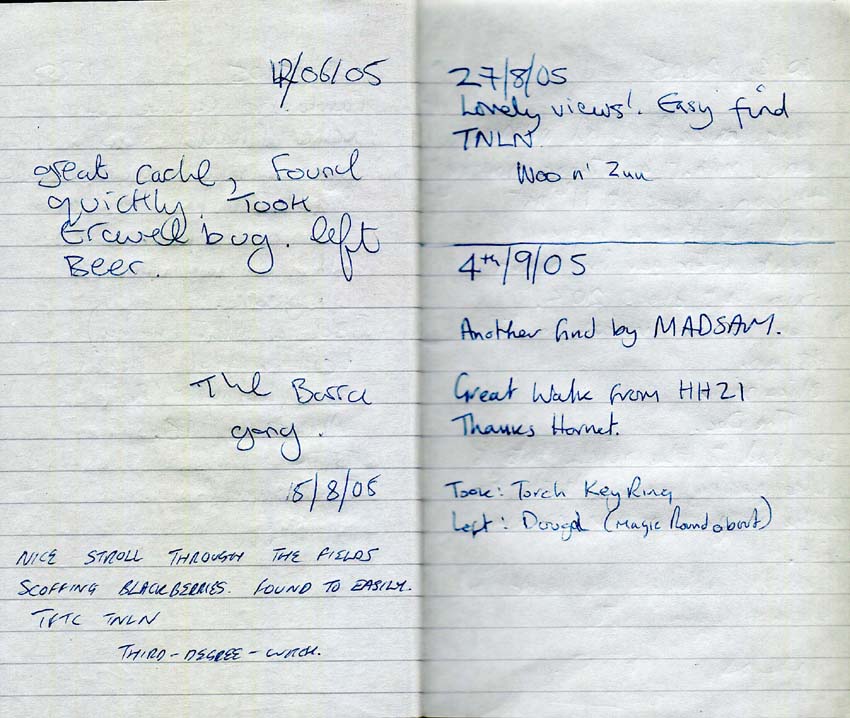 /06/05
great cache, Found
quickly. Took
Travell bug. left
Beer.
The Barra
gang.
15/8/05
NICE STROLL THROUGH THE FIELDS
SCOFFING BLACKBERRIES. FOUND TO EASILY.
TFTC TNLN
THIRD-DEGREE-WITCH.
27/8/05
Lovely views!. Easy find
TNLN
Woo n' Zuu
4th/9/05
Another find by MADSAM.
Great Walk from HH21
Thanks Hornet.
Took: Torch Key Ring
Left: Dougal (Magic Roundabout)